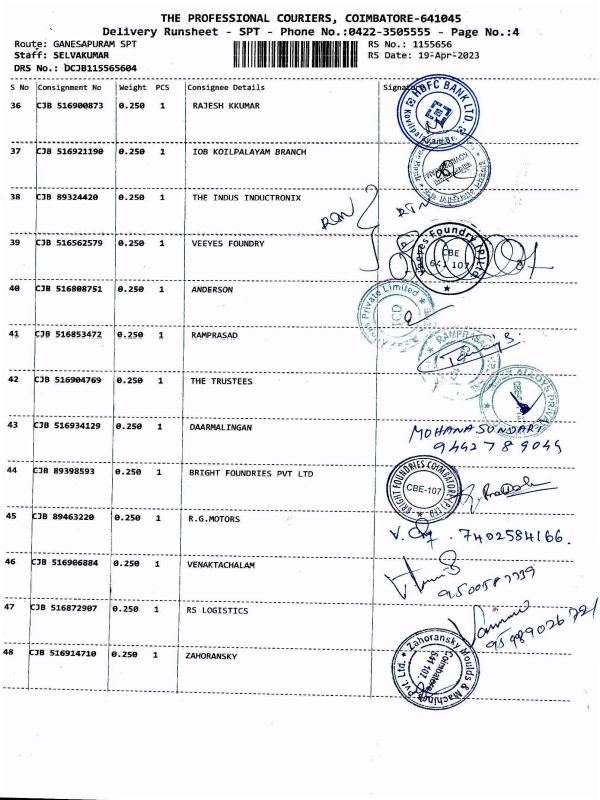 THE PROFESSIONAL COURIERS, COIMBATORE-641045
Delivery Runsheet - SPT - Phone No.:0422-3505555 - Page No.:4
Route: GANESAPURAM SPT RS No.: 1155656
Staff: SELVAKUMAR RS Date: 19-Apr-2023
DRS No.: DCJB115565604
S No Consignment No Weight PCS Consignee Details Signature
36 CJB 516900873 0.250 1 RAJESH KKUMAR
HDFC BANK LTD.
37 CJB 516921190 0.250 1 IOB KOILPALAYAM BRANCH
38 CJB 89324420 0.250 1 THE INDUS INDUCTRONIX
39 CJB 516562579 0.250 1 VEEYES FOUNDRY
Veeyes Foundry (P) Ltd
CBE
641 107
40 CJB 516808751 0.250 1 ANDERSON
Private Limited
41 CJB 516853472 0.250 1 RAMPRASAD
RAMPRASAD
42 CJB 516904769 0.250 1 THE TRUSTEES
43 CJB 516934129 0.250 1 DAARMALINGAN
MOHANA SUNDARI
9442789045
44 CJB 89398593 0.250 1 BRIGHT FOUNDRIES PVT LTD
BRIGHT FOUNDRIES COIMBATORE (P) LTD
CBE-107
45 CJB 89463220 0.250 1 R.G.MOTORS
7402584166.
46 CJB 516906884 0.250 1 VENAKTACHALAM
47 CJB 516872907 0.250 1 RS LOGISTICS
48 CJB 516914710 0.250 1 ZAHORANSKY
Zahoransky Moulds & Machines Pvt. Ltd.
Coimbatore
641 107.